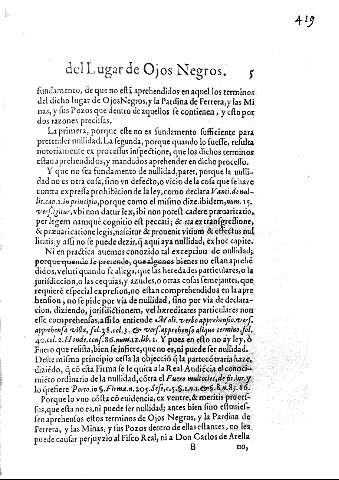 419
del Lugar de Ojos Negros. 5
fundamento, de que no està aprehendidos en aquel los terminos
del dicho lugar de OjosNegros, y la Pardina de Ferrera, y las Mi
nas, y sus Pozos que dentro de aquellos se contienen, y esto por
dos razones precissas.
La primera, porque este no es fundamento sufficiente para
pretender nullidad. La segunda, porque quando lo fuesse, resulta
notoriamente ex processus inspectione, que los dichos terminos
estan aprehendidos, y mandados aprehender en dicho processo.
Y que no sea fundamento de nullidad, patet, porque la nulli-
dad no es otra cosa, sino vn defecto, o vicio de la cosa que se haze
contra expressa prohibicion de la ley, como declara Vanci. de nul-
lit. cap. 1. in principio, porque como el mismo dize. ibidem, num. 15.
vers. igitur, vbi non datur lex, ibi non potest cadere præuaricatio,
per legem namque cognitio est peccati; & ita ex transgressione,
& præuaricatione legis, nascitur & prouenit vitium & effectus nul
litatis, y assi no se puede dezir, q̃ aqui aya nullidad, ex hoc capite.
Ni en practica auemos conozido tal excepcion de nullidad;
porque quando se pretende, que algunos bienes no estan aprehẽ
didos, veluti quando se alega, que las heredades particulares, o la
jurisdiccion, o las cequias, y azudes, o otras cosas semejantes, que
requierẽ especial expression, no estan comprehendidos en la apre
hension, no se pide por via de nullidad, sino por via de declara-
cion, diziendo, jurisdictionem, vel hæreditates particulares non
esse comprehensas, assi lo entiende Molì. verbo apprehensio, vers.
apprehensa villa, fol. 38. col. 3. & vers. apprehensio alique termino, fol.
40. col. 2. Hond. conf. 86. num. 12. lib. 1. Y pues en esto no ay ley, ò
Fuero que resista, bien se infiere, que no es, ni puede ser nullidad.
Deste mismo principio cessa la objecciõ q̃ la parte cõtraria haze,
diziẽdo, q̃ cõ esta Firma se le quita a la Real Audiẽcia el conoci-
miẽto ordinario de la nullidad, cõtra el Fuero multoties, de fir. iur. y
lo q̃ refiere Porto. in §. Firma. n. 205.
Porque lo vno cõsta cõ euidencia, ex ventre, & meritis proces-
sus, que esta no es, ni puede ser nullidad; antes bien sino estuuies-
sen aprehensos estos terminos de Ojos Negros, y la Pardina de
Ferrera, y las Minas, y sus Pozos dentro de ellas estantes, no les
puede causar perjuyzio al Fisco Real, ni a Don Carlos de Arella
B no,